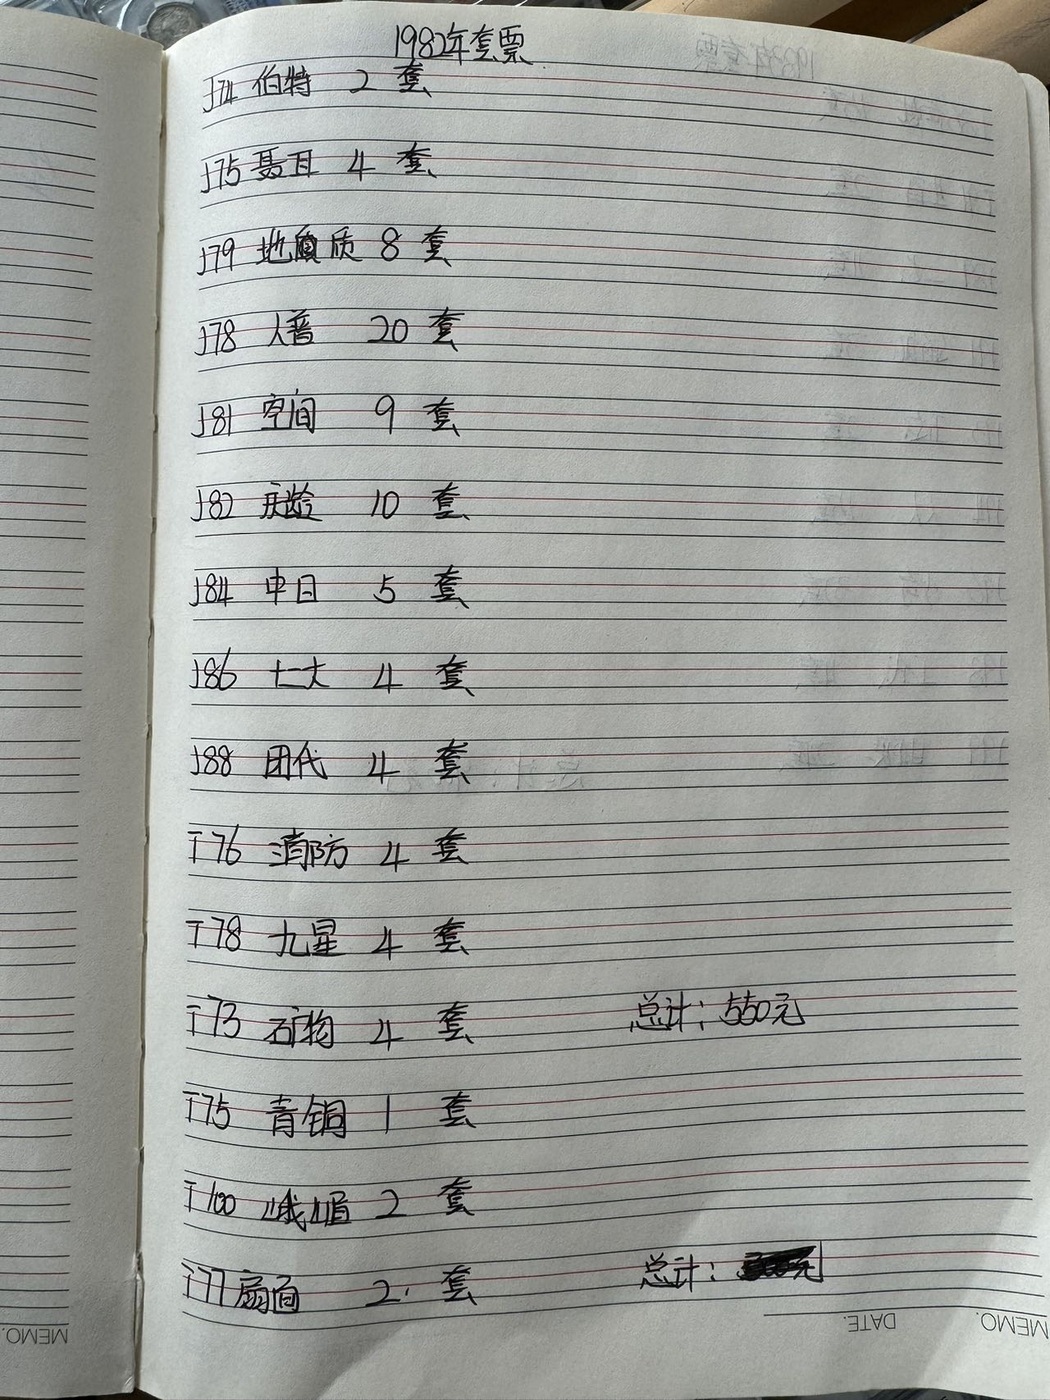 1982年套票
J74 伯特 2 套
J75 聂耳 4 套
J79 地质 8 套
J78 人普 20 套
J81 空间 9 套
J82 庆龄 10 套
J84 中日 5 套
J86 十大 4 套
J88 团代 4 套
T76 消防 4 套
T78 九星 4 套
T73 矿物 4 套
总计: 550元
T75 青铜 1 套
T100 峨嵋 2 套
T77 扇面 2. 套
总计:
MEMO.
DATE.
MEMO.